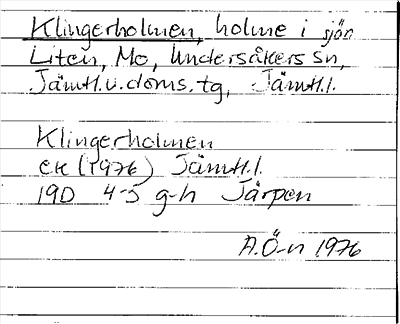 Klingerholmen, holme i sjön
Liten, Mo, Undersåkers sn,
Jämtl.v.doms.tg, Jämtl.l.
Klingerholmen
ek (1976) Jämtl.l.
19D 4-5 g-h Järpen
A.Ö-n 1976